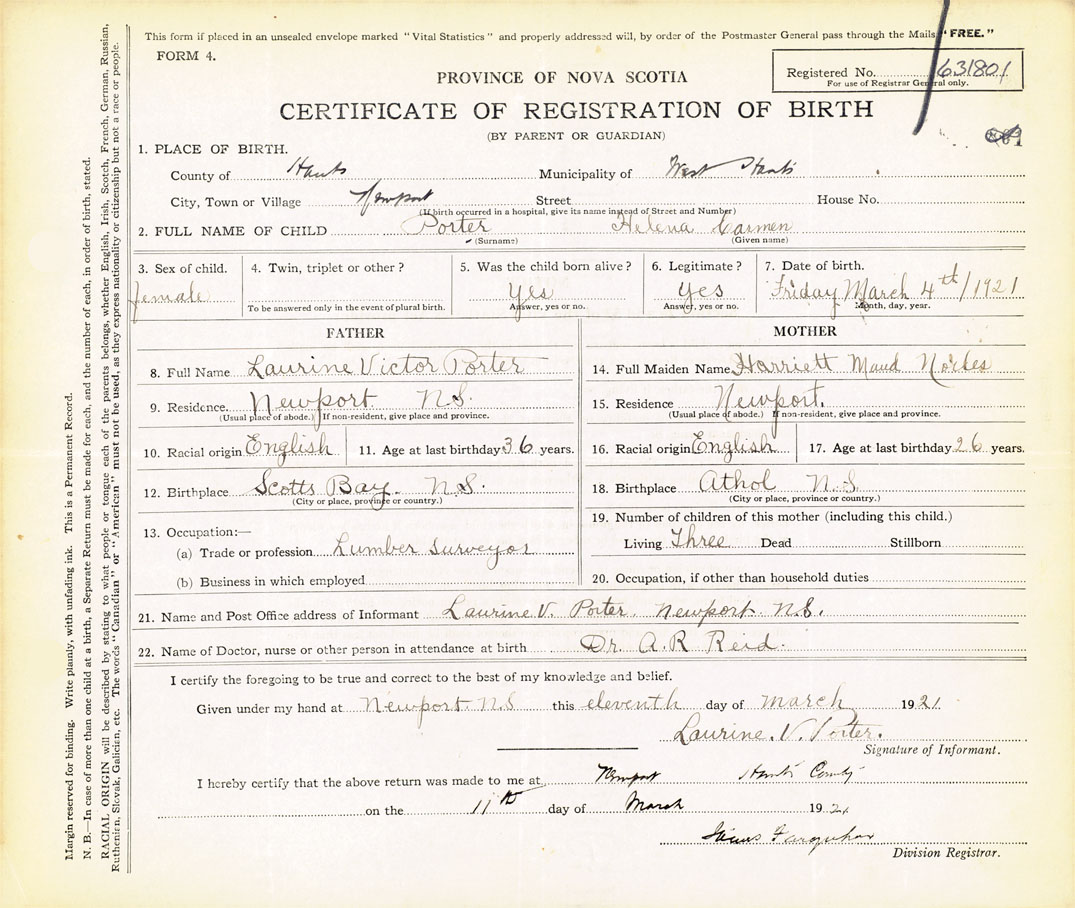 This form if placed in an unsealed envelope marked "Vital Statistics" and properly addressed will, by order of the Postmaster General pass through the Mails "FREE."
FORM 4.
PROVINCE OF NOVA SCOTIA
Registered No. 631801
For use of Registrar General only.
CERTIFICATE OF REGISTRATION OF BIRTH
(BY PARENT OR GUARDIAN)
1. PLACE OF BIRTH.
County of Hants Municipality of West Hants
City, Town or Village Newport Street House No.
(If birth occurred in a hospital, give its name instead of Street and Number)
2. FULL NAME OF CHILD Porter Helena Carmen
(Surname) (Given name)
3. Sex of child. 4. Twin, triplet or other? 5. Was the child born alive? 6. Legitimate? 7. Date of birth.
female Yes Yes Friday March 4th/1921
To be answered only in the event of plural birth. Answer, yes or no. Answer, yes or no. Month, day, year.
FATHER
8. Full Name Laurine Victor Porter
9. Residence. Newport N.S.
(Usual place of abode.) If non-resident, give place and province.
10. Racial origin English 11. Age at last birthday 36 years.
12. Birthplace Scotts Bay. N.S.
(City or place, province or country.)
13. Occupation:—
(a) Trade or profession Lumber surveyor
(b) Business in which employed
MOTHER
14. Full Maiden Name Harriett Maud
15. Residence Newport.
(Usual place of abode.) If non-resident, give place and province.
16. Racial origin English 17. Age at last birthday 26 years.
18. Birthplace Athol N.S.
(City or place, province or country.)
19. Number of children of this mother (including this child.)
Living Three Dead Stillborn
20. Occupation, if other than household duties
21. Name and Post Office address of Informant Laurine V. Porter Newport N.S.
22. Name of Doctor, nurse or other person in attendance at birth Dr. A. R Reid.
I certify the foregoing to be true and correct to the best of my knowledge and belief.
Given under my hand at Newport N.S this eleventh day of march 1921.
Laurine. V. Porter.
Signature of Informant.
I hereby certify that the above return was made to me at Newport Hants County
on the 11th day of March 1921
Farquhar
Division Registrar.
Margin reserved for binding. Write plainly, with unfading ink. This is a Permanent Record.
N. B.—In case of more than one child at a birth, a Separate Return must be made for each, and the number of each, in order of birth, stated.
RACIAL ORIGIN will be described by stating to what people or tongue each of the parents belongs, whether English, Irish, Scotch, French, German, Russian,
Ruthenian, Slovak, Galician, etc. The words "Canadian" or "American" must not be used, as they express nationality or citizenship but not a race or people.